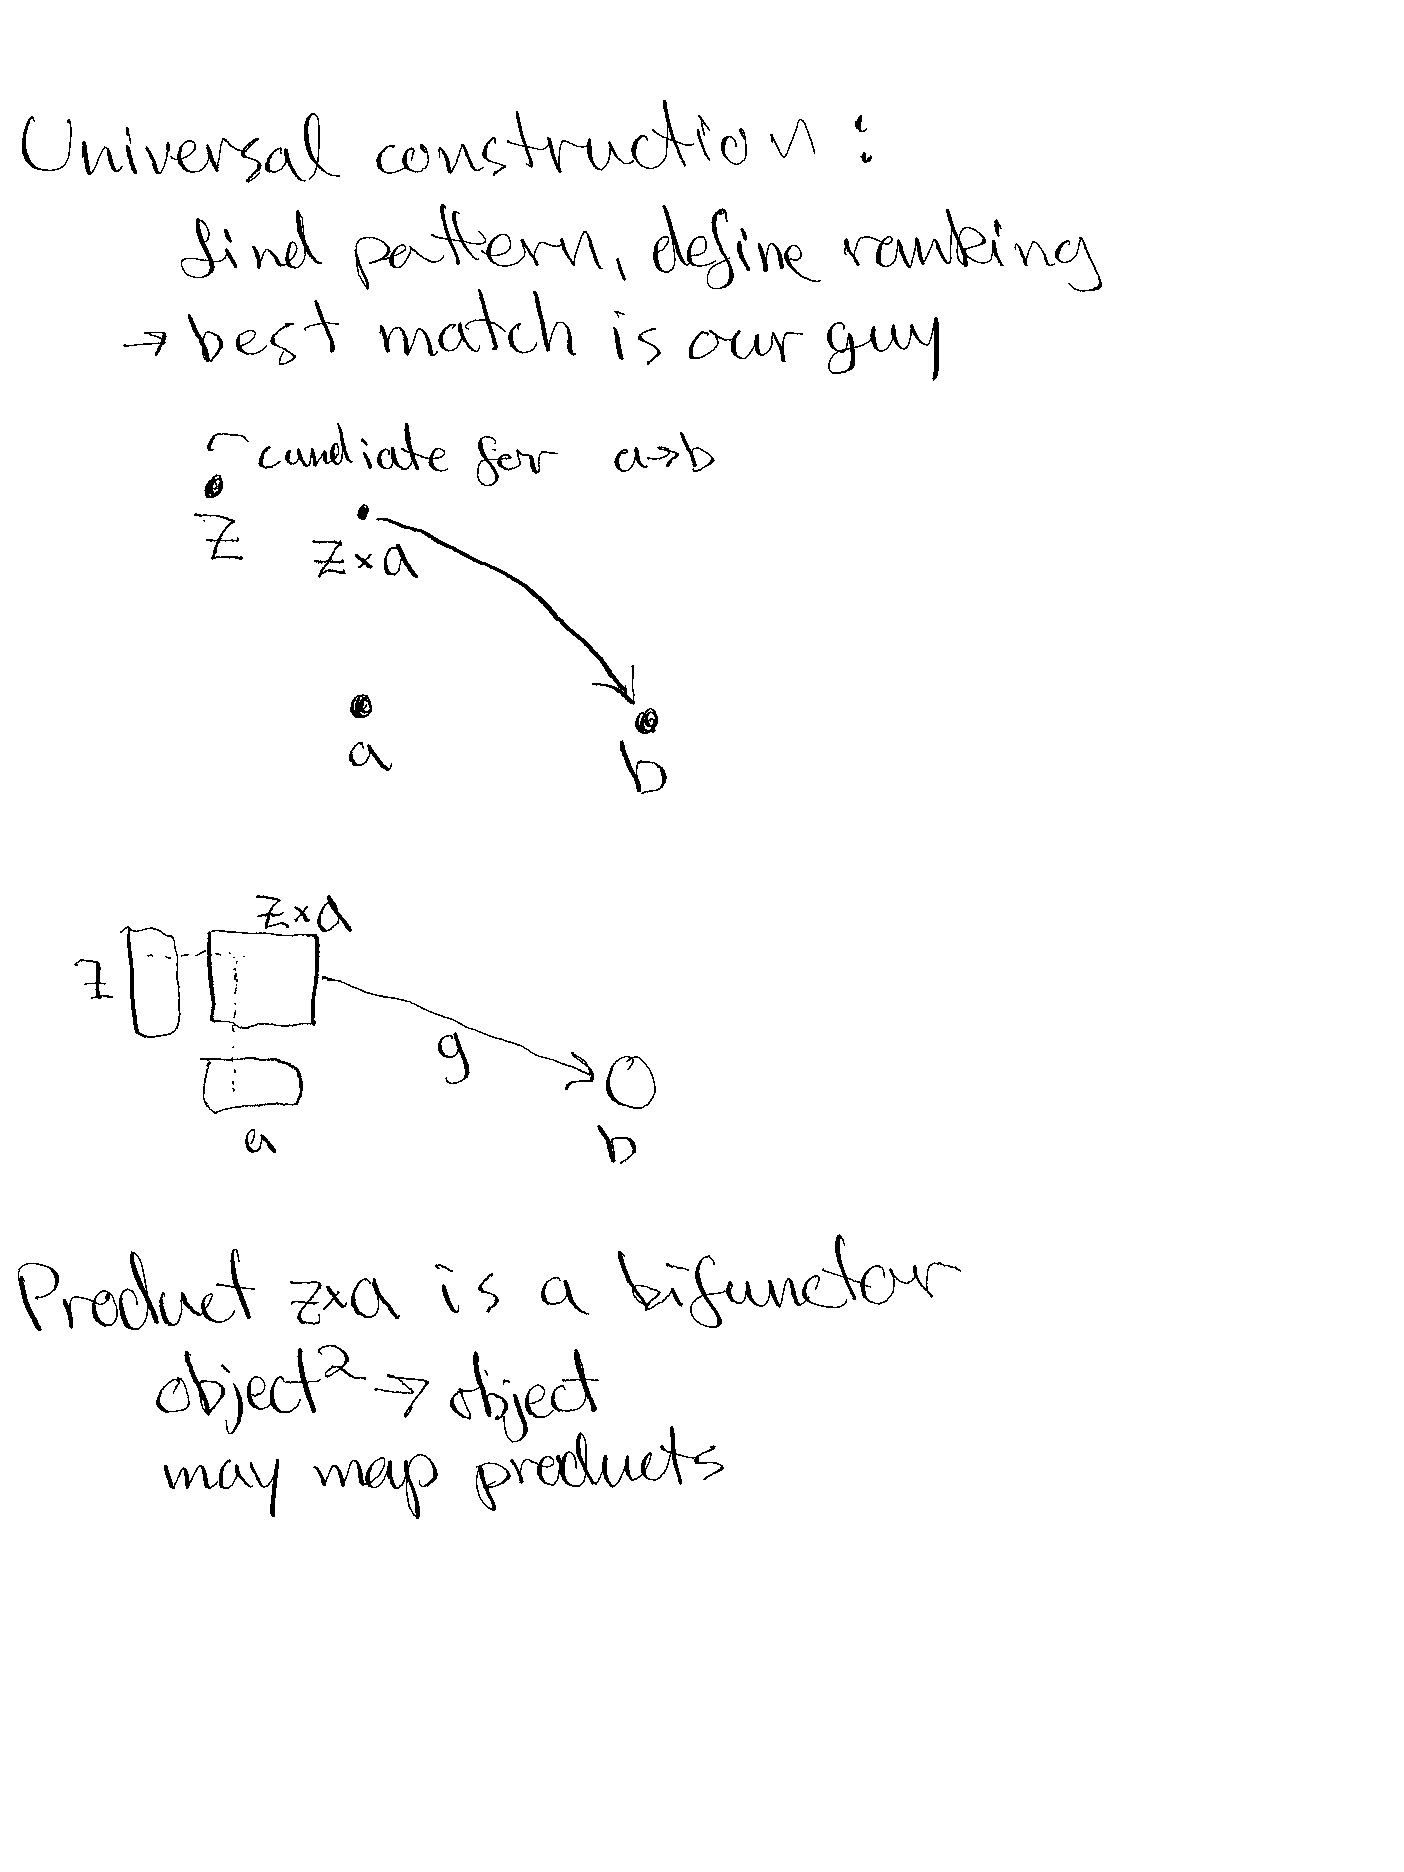 Universal construction:
find pattern, define ranking
→ best match is our guy
candiate for a→b
z
z×a
a
b
z×a
z
g
a
b
Product z×a is a bifunctor
object² → object
may map products